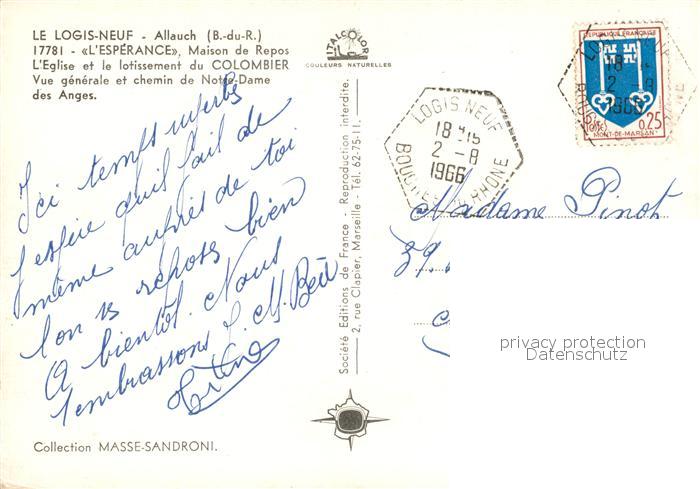 LE LOGIS-NEUF - Allauch (B.-du-R.)
17781 - «L'ESPÉRANCE», Maison de Repos
L'Eglise et le lotissement du COLOMBIER
Vue générale et chemin de Notre-Dame
des Anges.
ITALCOLOR
COULEURS NATURELLES
Ici temps
J'espère qu'il fait de
même auprès de toi
l'on repose bien
A bientôt. Nous
T'embrassons
Collection MASSE-SANDRONI.
Société Editions de France - Reproduction interdite.
2, rue Clapier, Marseille - Tél. 62-75-11
LOGIS NEUF
18 H15
2 - 8
1966
BOUCHES DU RHONE
REPUBLIQUE FRANÇAISE
POSTES
0,25
MONT-DE-MARSAN
Madame Pinot
39.
privacy protection
Datenschutz